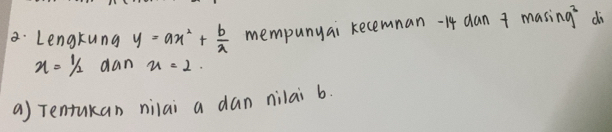 2. Lengkung y = ax² + b/x mempunyai kecerunan -14 dan 7 masing² di
x = 1/2 dan x = 2.
a) Tentukan nilai a dan nilai b.